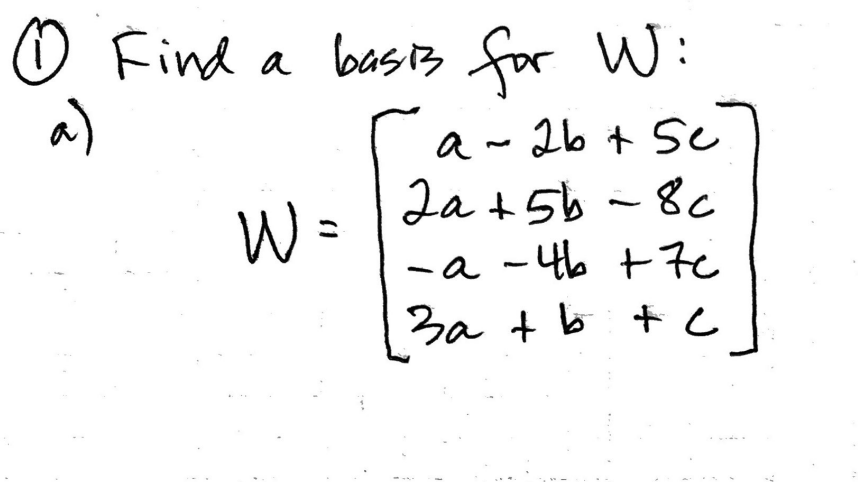 ① Find a basis for W:
a)
W = [ a - 2b + 5c
2a + 5b - 8c
-a - 4b + 7c
3a + b + c ]